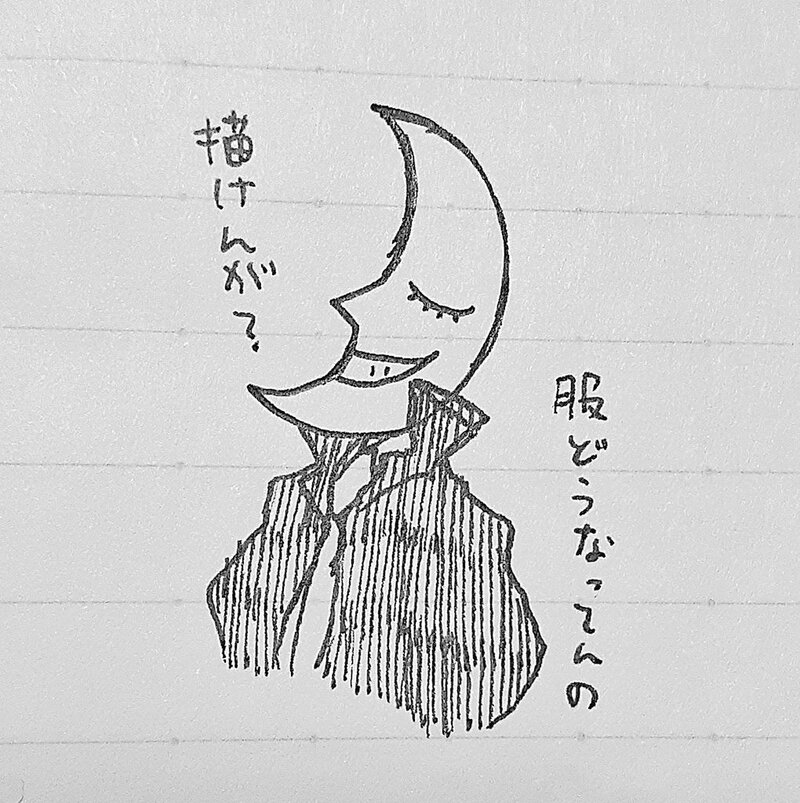 服どうなってんの
描けんが?